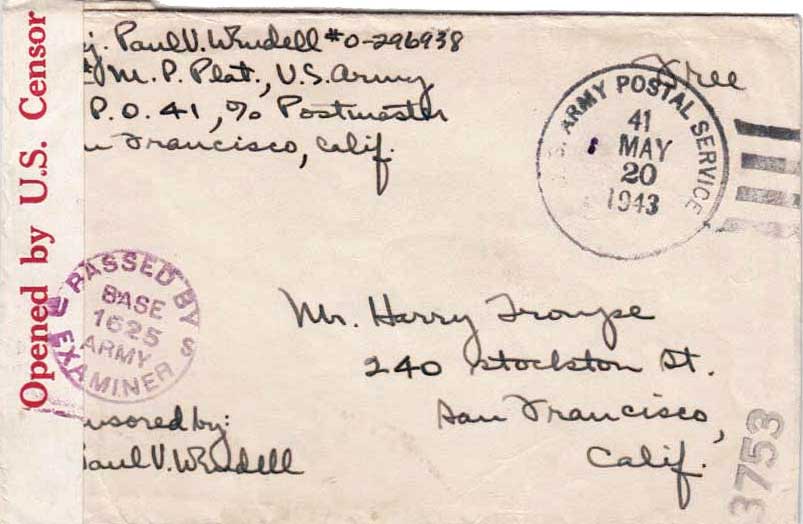 j. Paul V. Windell #0-296938
M. P. Plat., U.S. Army
P.O. 41, % Postmaster
n Francisco, Calif.
Free
U.S. ARMY POSTAL SERVICE
41
MAY
20
1943
Opened by U.S. Censor
PASSED BY
BASE
1625
ARMY
EXAMINER
U S
Mr. Harry
240 Stockston St.
San Francisco,
Calif.
nsored by:
Paul V. Windell
3753